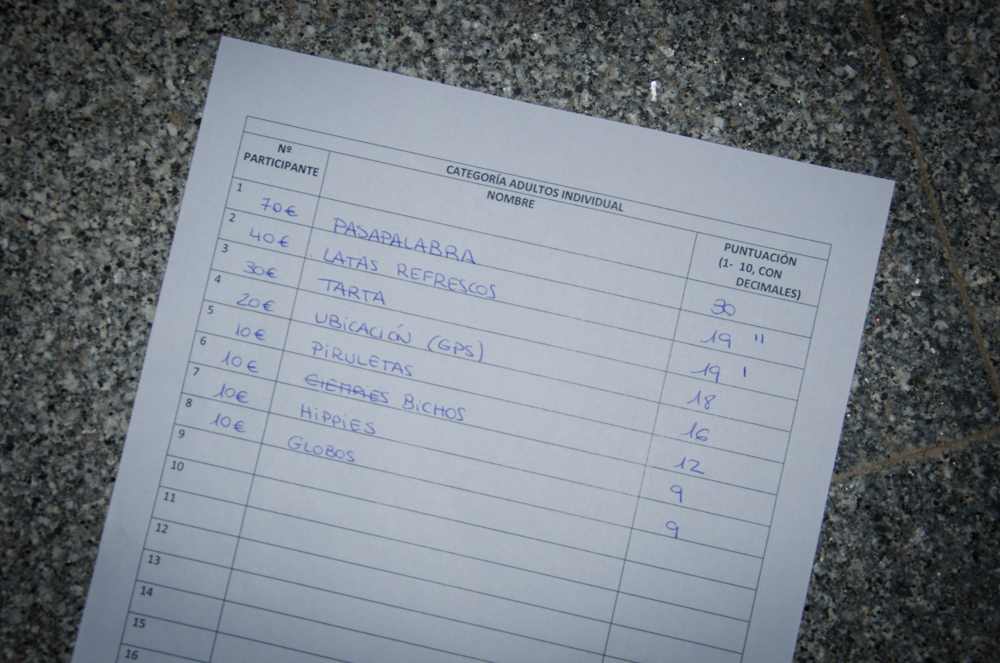 CATEGORÍA ADULTOS INDIVIDUAL
Nº PARTICIPANTE NOMBRE PUNTUACIÓN (1- 10, CON DECIMALES)
1 70€ PASAPALABRA 30
2 40€ LATAS REFRESCOS 19 "
3 30€ TARTA 19 '
4 20€ UBICACIÓN (GPS) 18
5 10€ PIRULETAS 16
6 10€ BICHOS 12
7 10€ HIPPIES 9
8 10€ GLOBOS 9
9
10
11
12
13
14
15
16